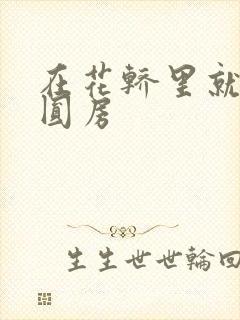 在花轿里就
圆房
生生世世輪回